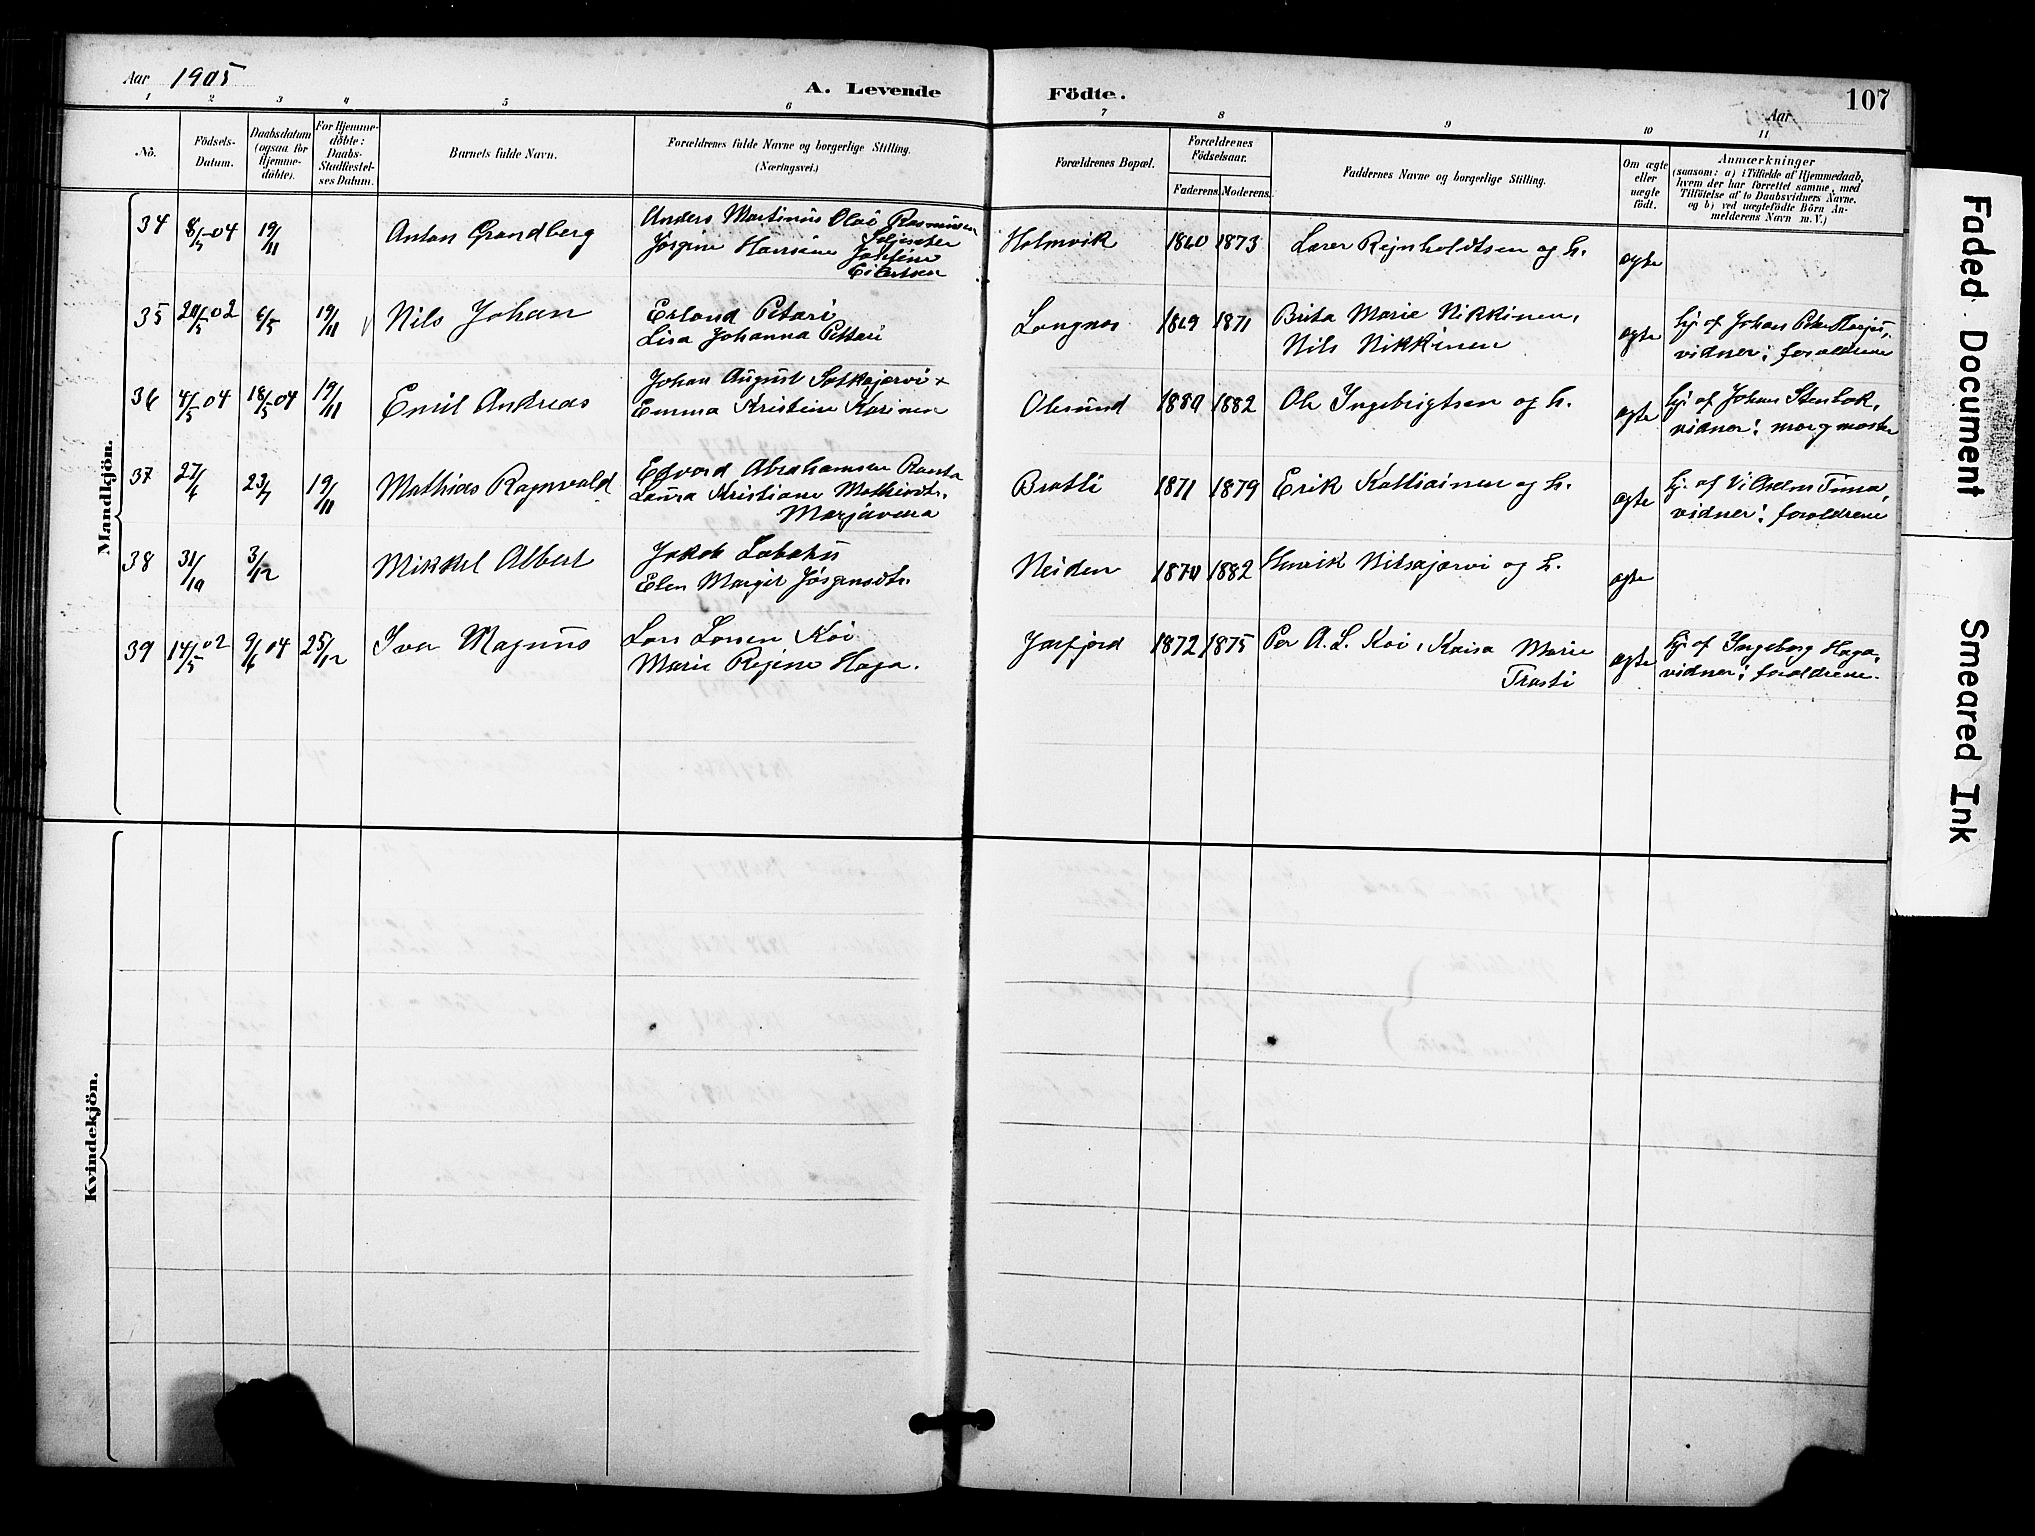 Aar 1905
A. Levende Födte.
107
Aar
1 2 3 4 5 6 7 8 9 10 11
No.
Födsels-
Datum.
Daabsdatum
(ogsaa for
Hjemme-
döbte).
For Hjemme-
döbte:
Daabs-
Stadfæstel-
ses Datum.
Barnets fulde Navn.
Forældrenes fulde Navne og borgerlige Stilling.
(Næringsvei.)
Forældrenes Bopæl.
Forældrenes
Födselsaar.
Faderens. Moderens.
Faddernes Navne og borgerlige Stilling.
Om ægte
eller
uægte
födt.
Anmærkninger
(saasom: a) i Tilfælde af Hjemmedaab,
hvem der har forrettet samme, med
Tilföielse af to Daabsvidners Navne.
og b) ved uægtefödte Börn An-
melderens Navn m. V.)
Mandkjön.
34 8/7 04 19/11 Anton Grandberg
Anders Martinus Olai Rasmussen
Jörgine Hansine Josefine
Eilertsen
Holmvik 1860 1873 Lærer Rejnholdtsen og h. ægte
35 20/5 02 6/5 19/11 Nils Johan
Erland Petari
Lisa Johanna Pettari
Langnes 1869 1871 Brita Marie Nikkinen,
Nils Nikkinen
ægte hj. af Johan Peter
vidner: forældrene
36 4/5 04 18/5 04 19/11 Emil Andreas
Johan August Satkajærvi
Emma Kristine Karinen
Olesund 1880 1882 Ole Ingebrigtsen og h. ægte
hj. af Johan Stenbok,
vidner: mor og moster
37 27/6 23/7 19/11 Mathias Ragnvald
Edvard Abrahamsen Ranta
Laura Kristiane Mathisdtr.
Marjavara
Bratli 1871 1879 Erik Kattiainen og h. ægte
hj. af Vilhelm
vidner: forældrene
38 31/10 3/12 Mikkel Albert
Jakob Labahu
Elen Margit Jörgensdtr.
Neiden 1870 1882 Henrik Nilsajærvi og h. ægte
39 14/5 02 9/6 04 25/12 Iver Magnus
Lars Larsen Koi
Marie Regine Haga.
Jarfjord 1872 1875 Per A. L. Koi, Kaisa Marie
Trasti
ægte hj. af Ingeborg Haga,
vidner: forældrene.
Kvindekjön.
Faded Document
Smeared Ink